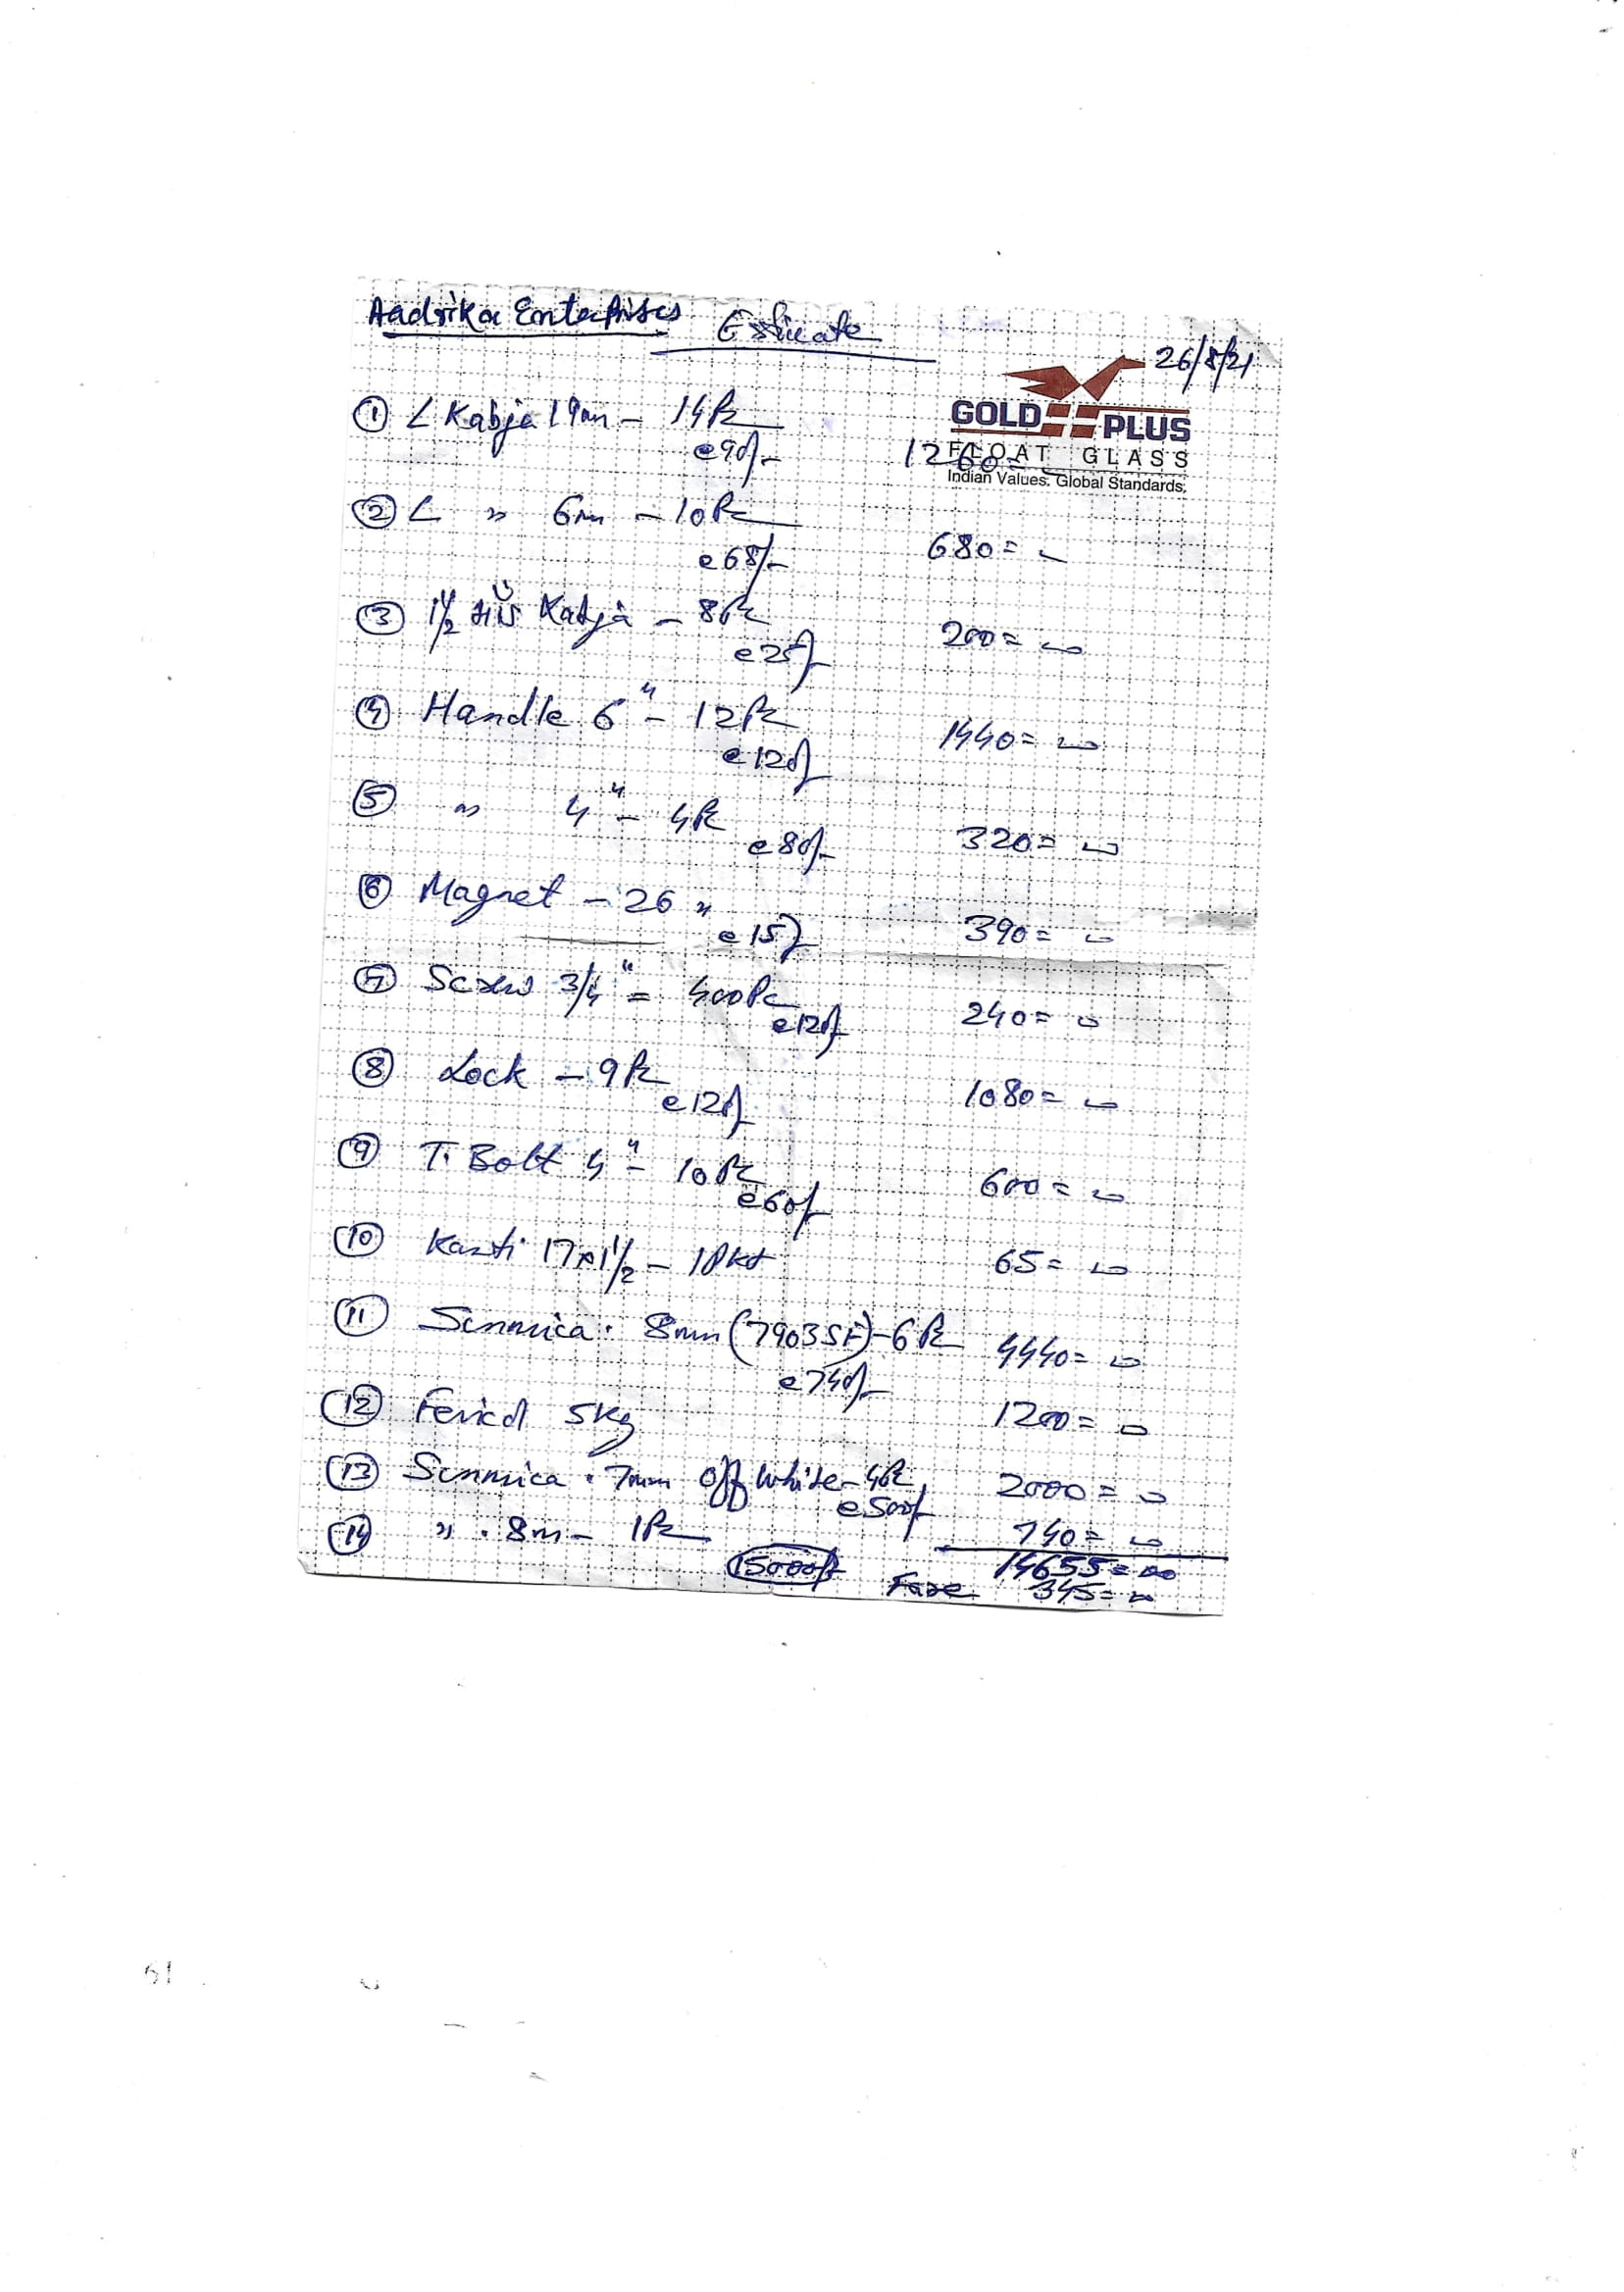 Aadrika Enterprises Estimate
26/8/21
GOLD PLUS
FLOAT GLASS
Indian Values. Global Standards.
① L Kabja 19mm - 14Pc
@90/- 1260=
② L " 6m - 10Pc
@68/- 680=
③ 1½" Kabja - 8Pc
@25/- 200=
④ Handle 6" - 12Pc
@120/- 1440=
⑤ " 4" - 4Pc
@80/- 320=
⑥ Magnet - 26 "
@15/- 390=
⑦ Screw 3/4" = 400Pc
240=
⑧ Lock - 9Pc
@120/- 1080=
⑨ T. Bolt 4" - 10Pc
@60/- 600=
⑩ 17x1½ - 1Pkt 65=
⑪ Sunmica .8mm (7903SF) - 6Pc 4440=
@740/-
⑫ Fevicol 5Kg 1200=
⑬ Sunmica .7mm Off White - 4Pc 2000=
@500/-
⑭ " .8m - 1Pc 740=
14655=00
15000/- 345=